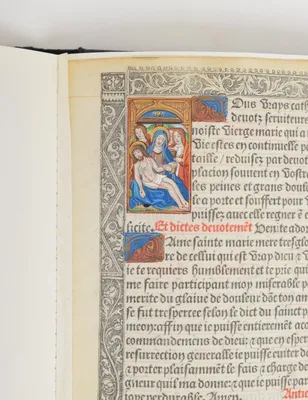 Ous Vrays cath
devotz serviteurs
noiste Vierge marie qui a
Vie estes en continuelle p
taille / reduisez par devot
plation souvent en Vostre
les peines et grans doule
a porte et souffert pour V
puissez avecelle regner es
licite. Et dictes devotemẽt. Deute ador
Ame sainte marie mere tresgl
re de celluy qui est Vray dieu &
ie te requiers humblement et te prie que
me faire participant moy miserable p
merite du glaive de douleur dõt ton am
se fut trespercee selon le dict du sainct
meon: affin que ie puisse entieremẽt ac
commandemens de dieu: & que en esper
resurrection generalle ie puisse entier
& porter plaisammẽt le fais & charge de
le quil ma donne: & que ie puisse parue
ioye perdurable. Amen.